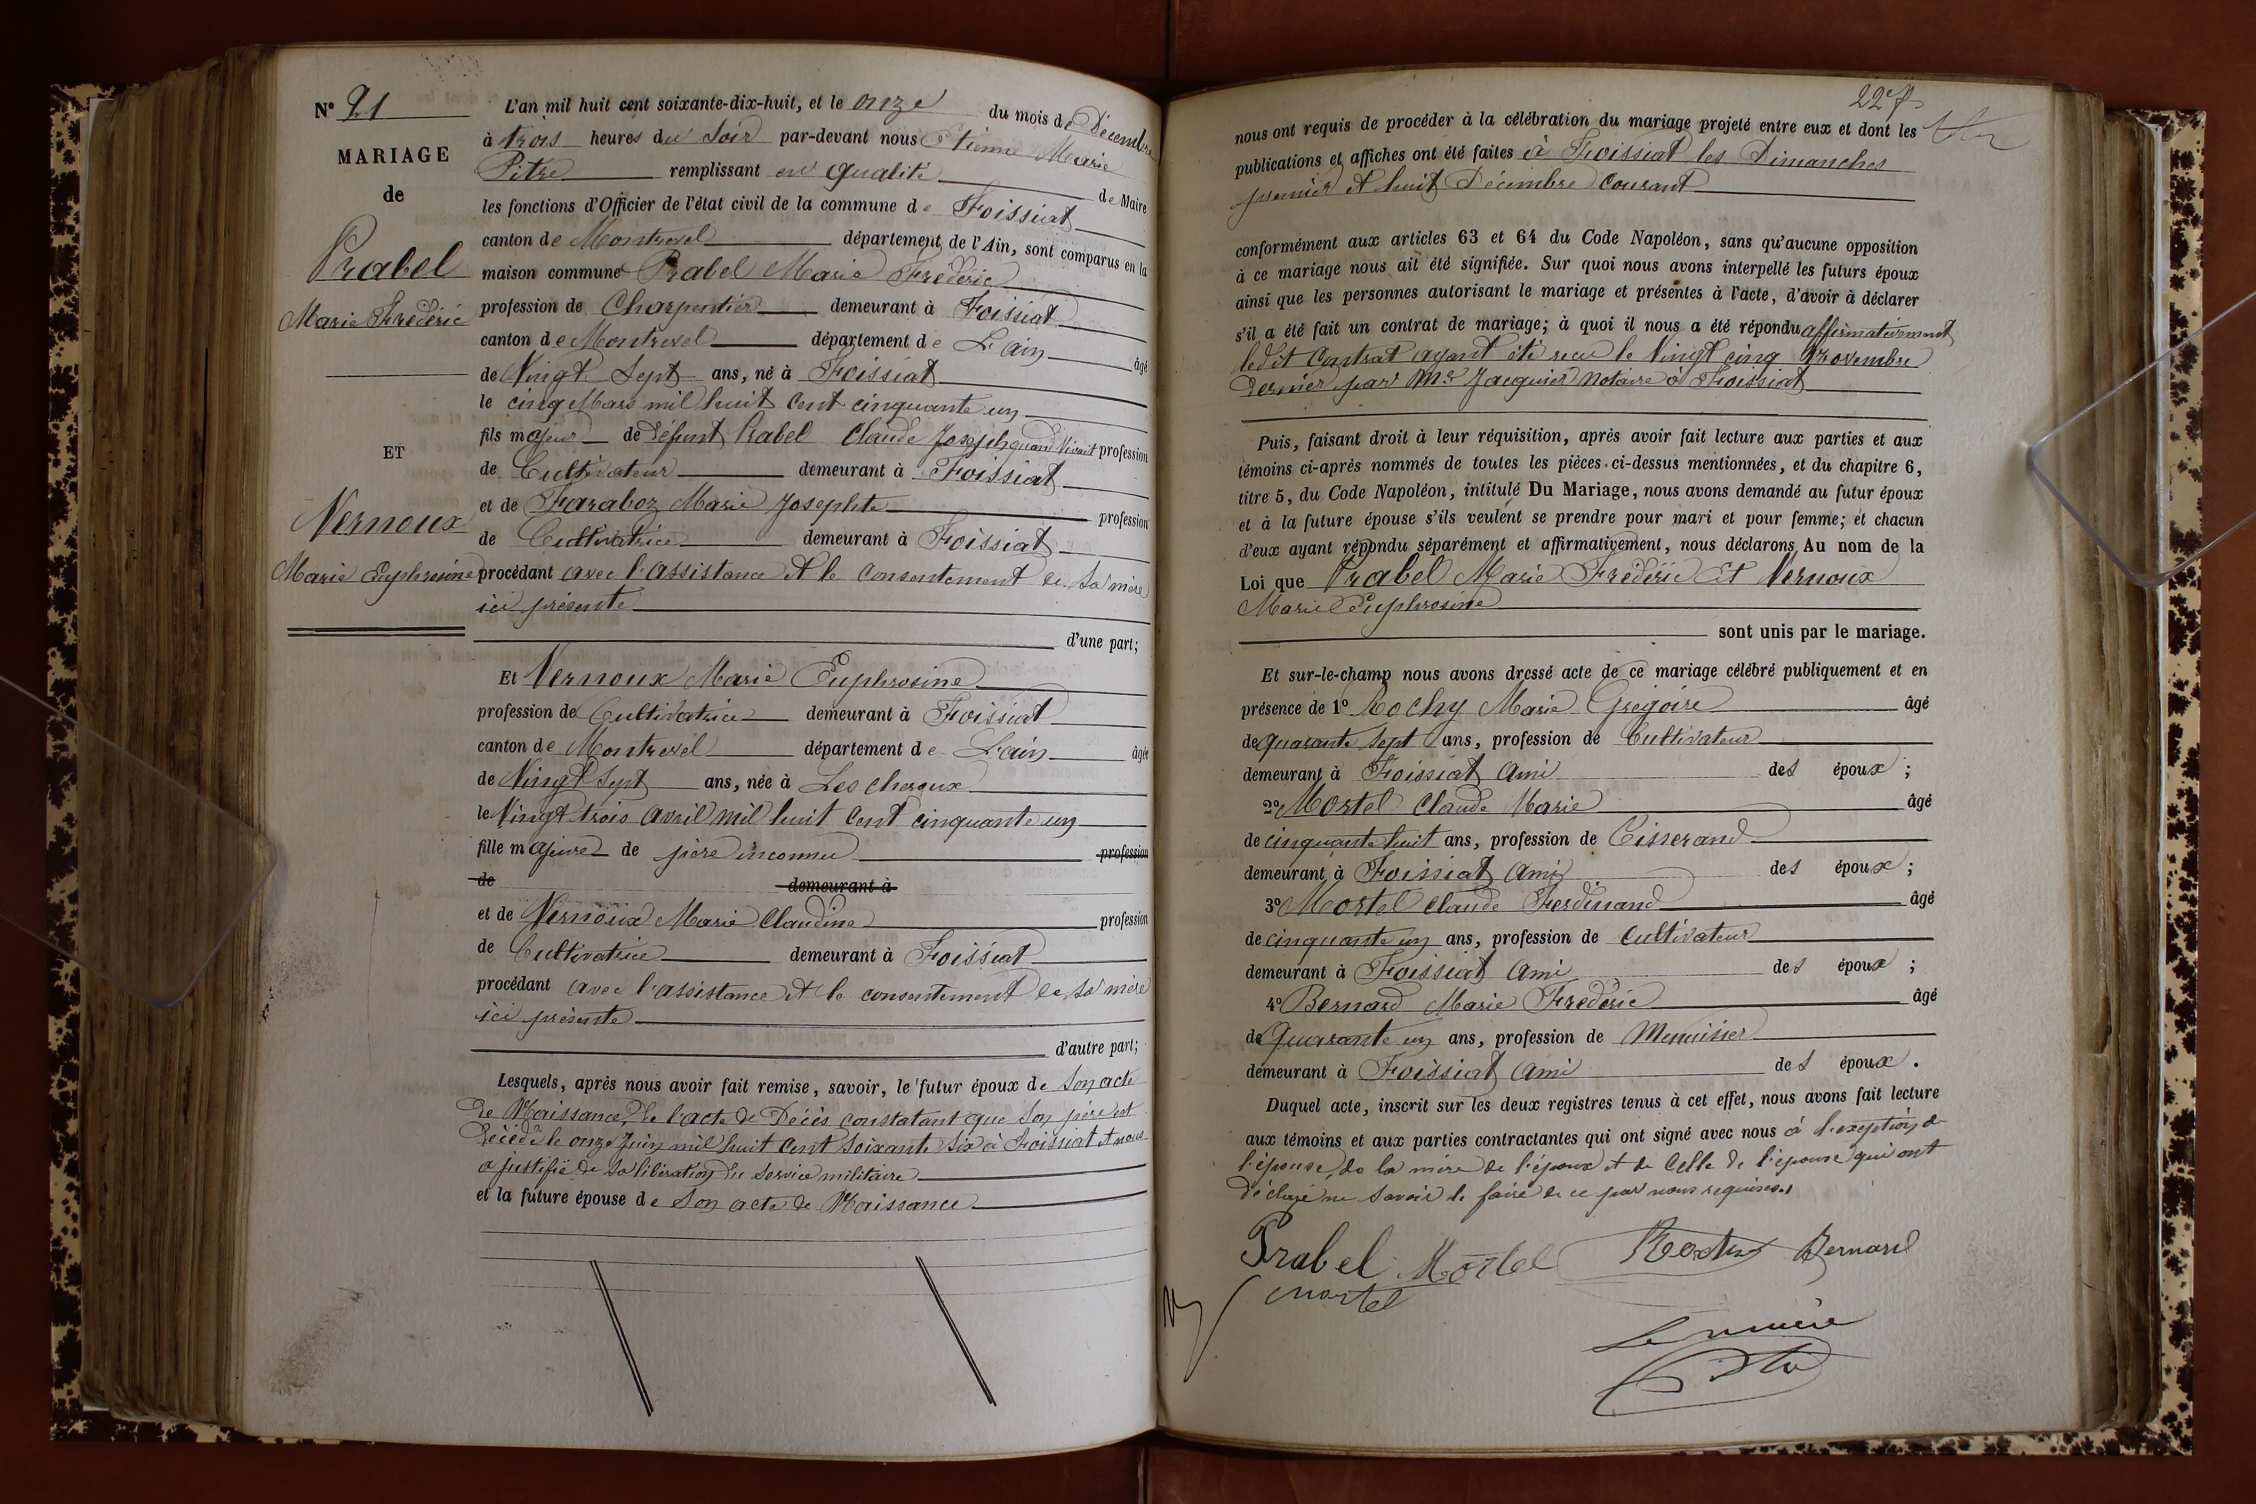 N° 21
MARIAGE
de
Prabel
Marie Frédéric
ET
Vernoux
Marie Euphrosine
L'an mil huit cent soixante-dix-huit, et le onze du mois de Décembre
à trois heures du soir par-devant nous Etienne Marie
Pitre remplissant en qualité de Maire
les fonctions d'Officier de l'état civil de la commune de Foissiat
canton de Montrevel département de l'Ain, sont comparus en la
maison commune Prabel Marie Frédéric
profession de Charpentier demeurant à Foissiat
canton de Montrevel département de L'ain âgé
de Vingt Sept ans, né à Foissiat
le cinq Mars mil huit cent cinquante un
fils majeur de défunt Prabel Claude Joseph quand vivait profession
de Cultivateur demeurant à Foissiat
et de Faraboz Marie Josephte profession
de Cultivatrice demeurant à Foissiat
procédant avec l'assistance et le consentement de sa mère
ici présente
d'une part;
Et Vernoux Marie Euphrosine
profession de Cultivatrice demeurant à Foissiat
canton de Montrevel département de L'ain âgée
de Vingt Sept ans, née à Les cheroux
le Vingt trois avril mil huit cent cinquante un
fille majeure de père inconnu profession
de demeurant à
et de Vernoux Marie Claudine profession
de Cultivatrice demeurant à Foissiat
procédant avec l'assistance et le consentement de sa mère
ici présente
d'autre part;
Lesquels, après nous avoir fait remise, savoir, le futur époux de son acte
de Naissance, de l'acte de Décès constatant que son père est
décédé le onze Juin mil huit cent soixante six à Foissiat et nous
a justifié de sa libération du service militaire
et la future épouse de son acte de Naissance
227
nous ont requis de procéder à la célébration du mariage projeté entre eux et dont les
publications et affiches ont été faites à Foissiat les Dimanches
premier et huit Décembre courant
conformément aux articles 63 et 64 du Code Napoléon, sans qu'aucune opposition
à ce mariage nous ait été signifiée. Sur quoi nous avons interpellé les futurs époux
ainsi que les personnes autorisant le mariage et présentes à l'acte, d'avoir à déclarer
s'il a été fait un contrat de mariage; à quoi il nous a été répondu affirmativement
ledit contrat ayant été reçu le Vingt cinq Novembre
dernier par Me Jacquier notaire à Foissiat
Puis, faisant droit à leur réquisition, après avoir fait lecture aux parties et aux
témoins ci-après nommés de toutes les pièces ci-dessus mentionnées, et du chapitre 6,
titre 5, du Code Napoléon, intitulé Du Mariage, nous avons demandé au futur époux
et à la future épouse s'ils veulent se prendre pour mari et pour femme; et chacun
d'eux ayant répondu séparément et affirmativement, nous déclarons Au nom de la
Loi que Prabel Marie Frédéric Et Vernoux
Marie Euphrosine
sont unis par le mariage.
Et sur-le-champ nous avons dressé acte de ce mariage célébré publiquement et en
présence de 1° Rochy Marie Grégoire âgé
de quarante sept ans, profession de Cultivateur
demeurant à Foissiat ami des époux ;
2° Mortel Claude Marie âgé
de cinquante huit ans, profession de Tisserand
demeurant à Foissiat ami des époux ;
3° Mortel Claude Ferdinand âgé
de cinquante un ans, profession de Cultivateur
demeurant à Foissiat ami des époux ;
4° Bernard Marie Frédéric âgé
de Quarante un ans, profession de Menuisier
demeurant à Foissiat ami des époux .
Duquel acte, inscrit sur les deux registres tenus à cet effet, nous avons fait lecture
aux témoins et aux parties contractantes qui ont signé avec nous à l'exeption de
l'épouse, de la mère de l'époux et de celle de l'épouse qui ont
déclaré ne savoir le faire de ce par nous requises.
Prabel Mortel Bernard
mortel
Le maire